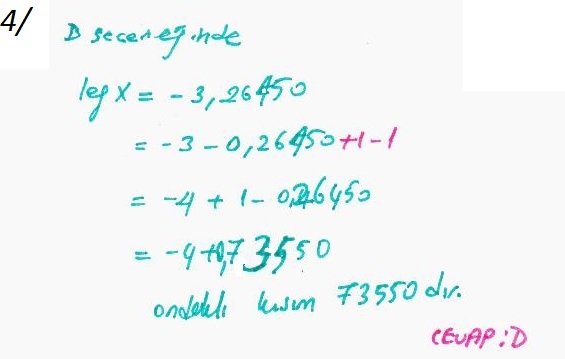 4/
D seçeneğinde
log x = -3,26450
= -3 - 0,26450 +1-1
= -4 + 1 - 0,26450
= -4+0,73550
ondalıklı kısım 73550 dir.
CEVAP:D